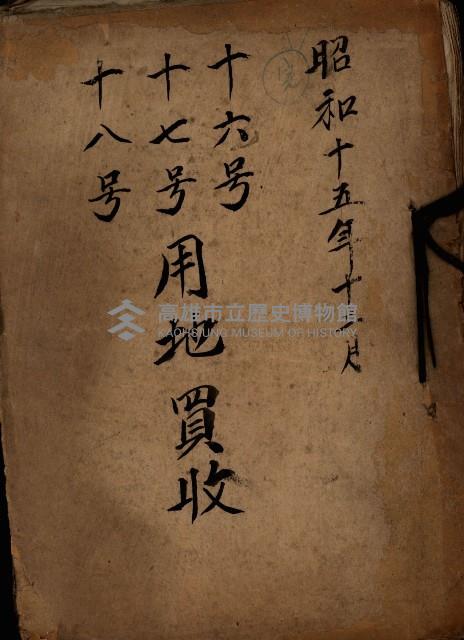 昭和十五年十一月
完
十六号
十七号
十八号
用地買収
高雄市立歷史博物館
KAOHSIUNG MUSEUM OF HISTORY